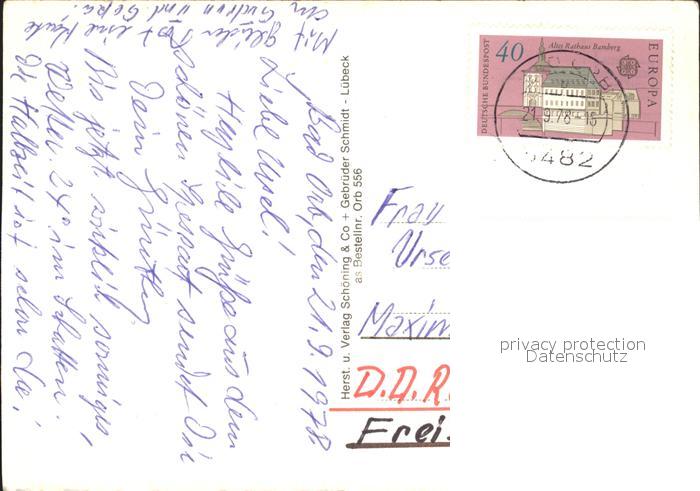 Bad Orb, den 21.9.1978
Liebe Ursel!
Herzliche Grüße aus dem
schönen Spessart sendet Dir
Dein Günther
Bis jetzt wirklich sonniges
Wetter. 24° im Schatten.
Die Halbzeit ist schon da!
Mit gleicher Post eine Karte
an Gudrun und
Herst. u. Verlag Schöning & Co + Gebrüder Schmidt - Lübeck
as Bestellnr. Orb 556
DEUTSCHE BUNDESPOST
40
Altes Rathaus Bamberg
EUROPA
21.9.78-16
6482
Frau
Urse
Maxim
D.D.R.
Frei
privacy protection
Datenschutz